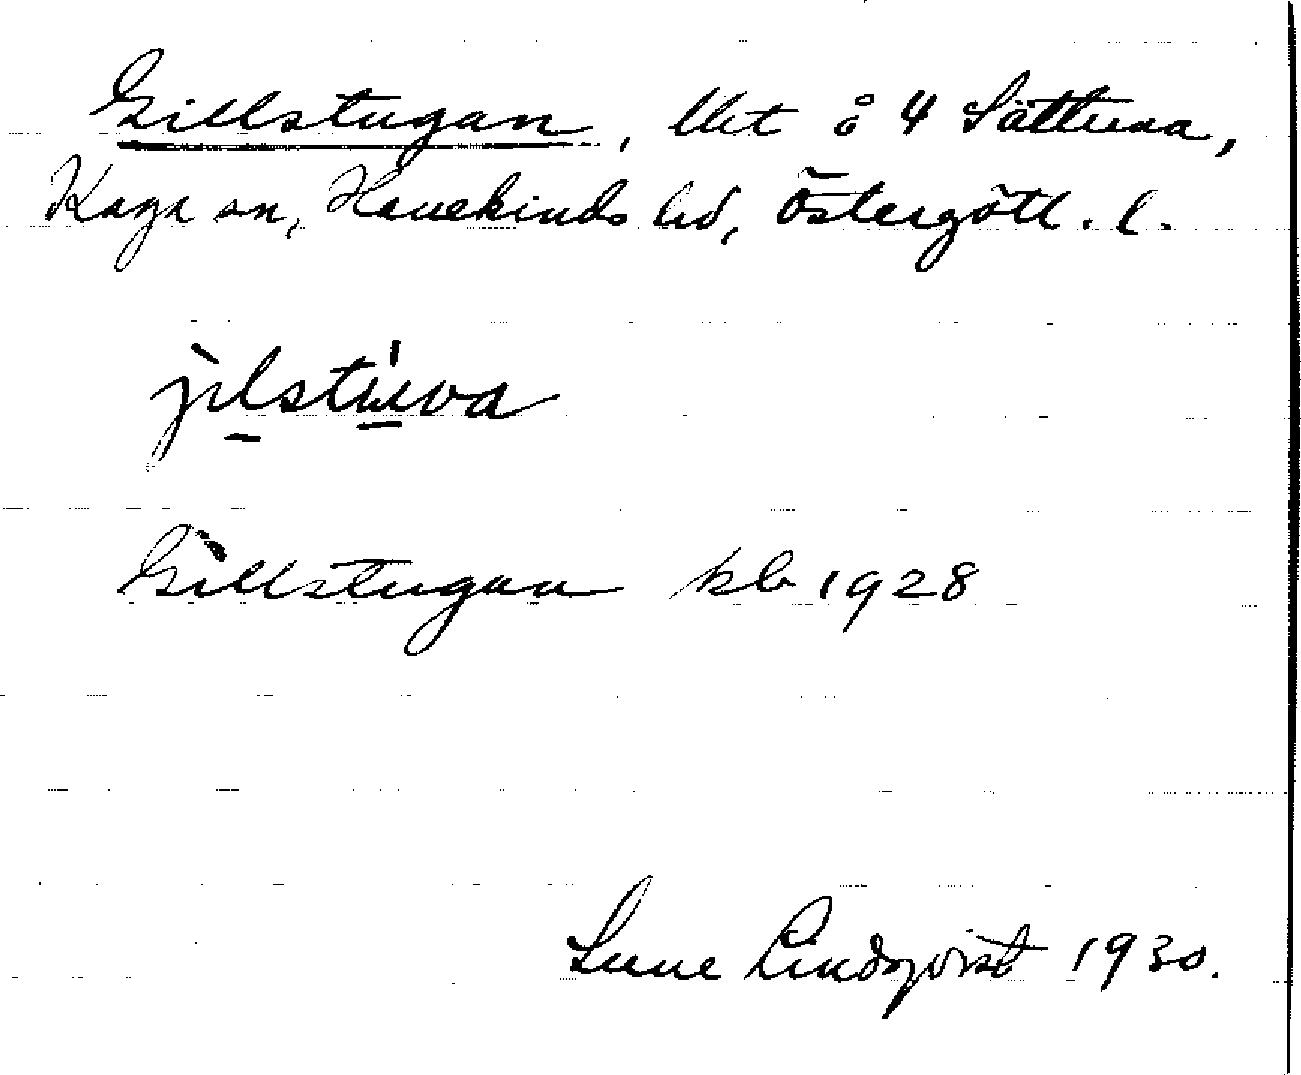 Gillstugan, lht å 4 Sättuna,
Kaga sn, Hanekinds hd, Östergötl. l.
jìlstúwa
Gillstugan kb 1928
Sune Lindqvist 1930.